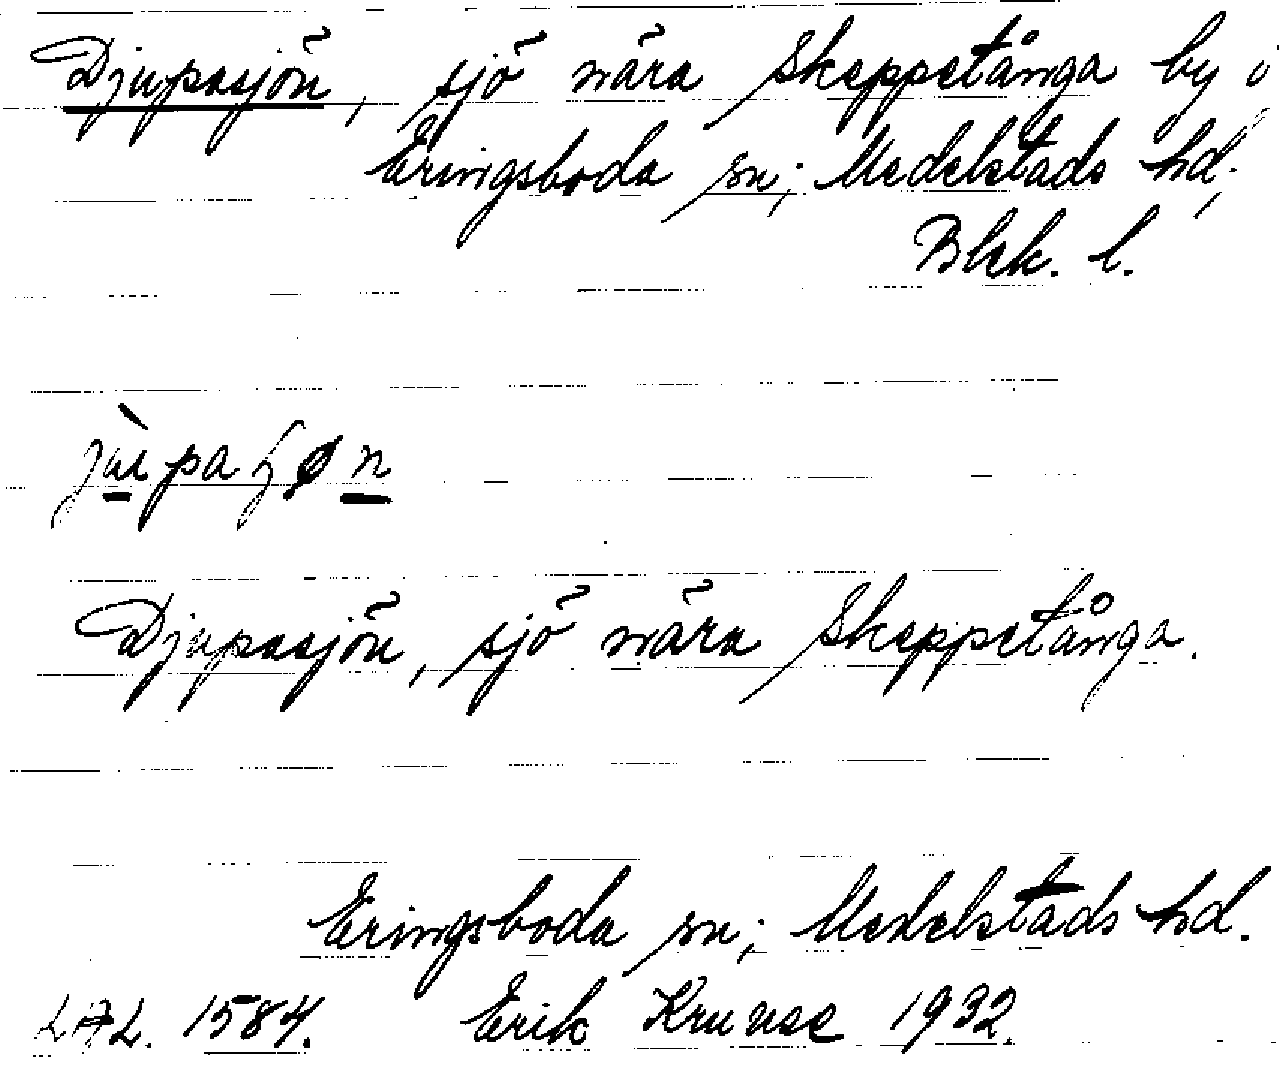 Djupasjön, sjö nära Skeppetånga by i
Eringsboda sn; Medelstads hd;
Blek. l.
Djupasjön, sjö nära Skeppetånga.
Eringsboda sn; Medelstads hd.
LAL. 1584. Erik Kruuse 1932.